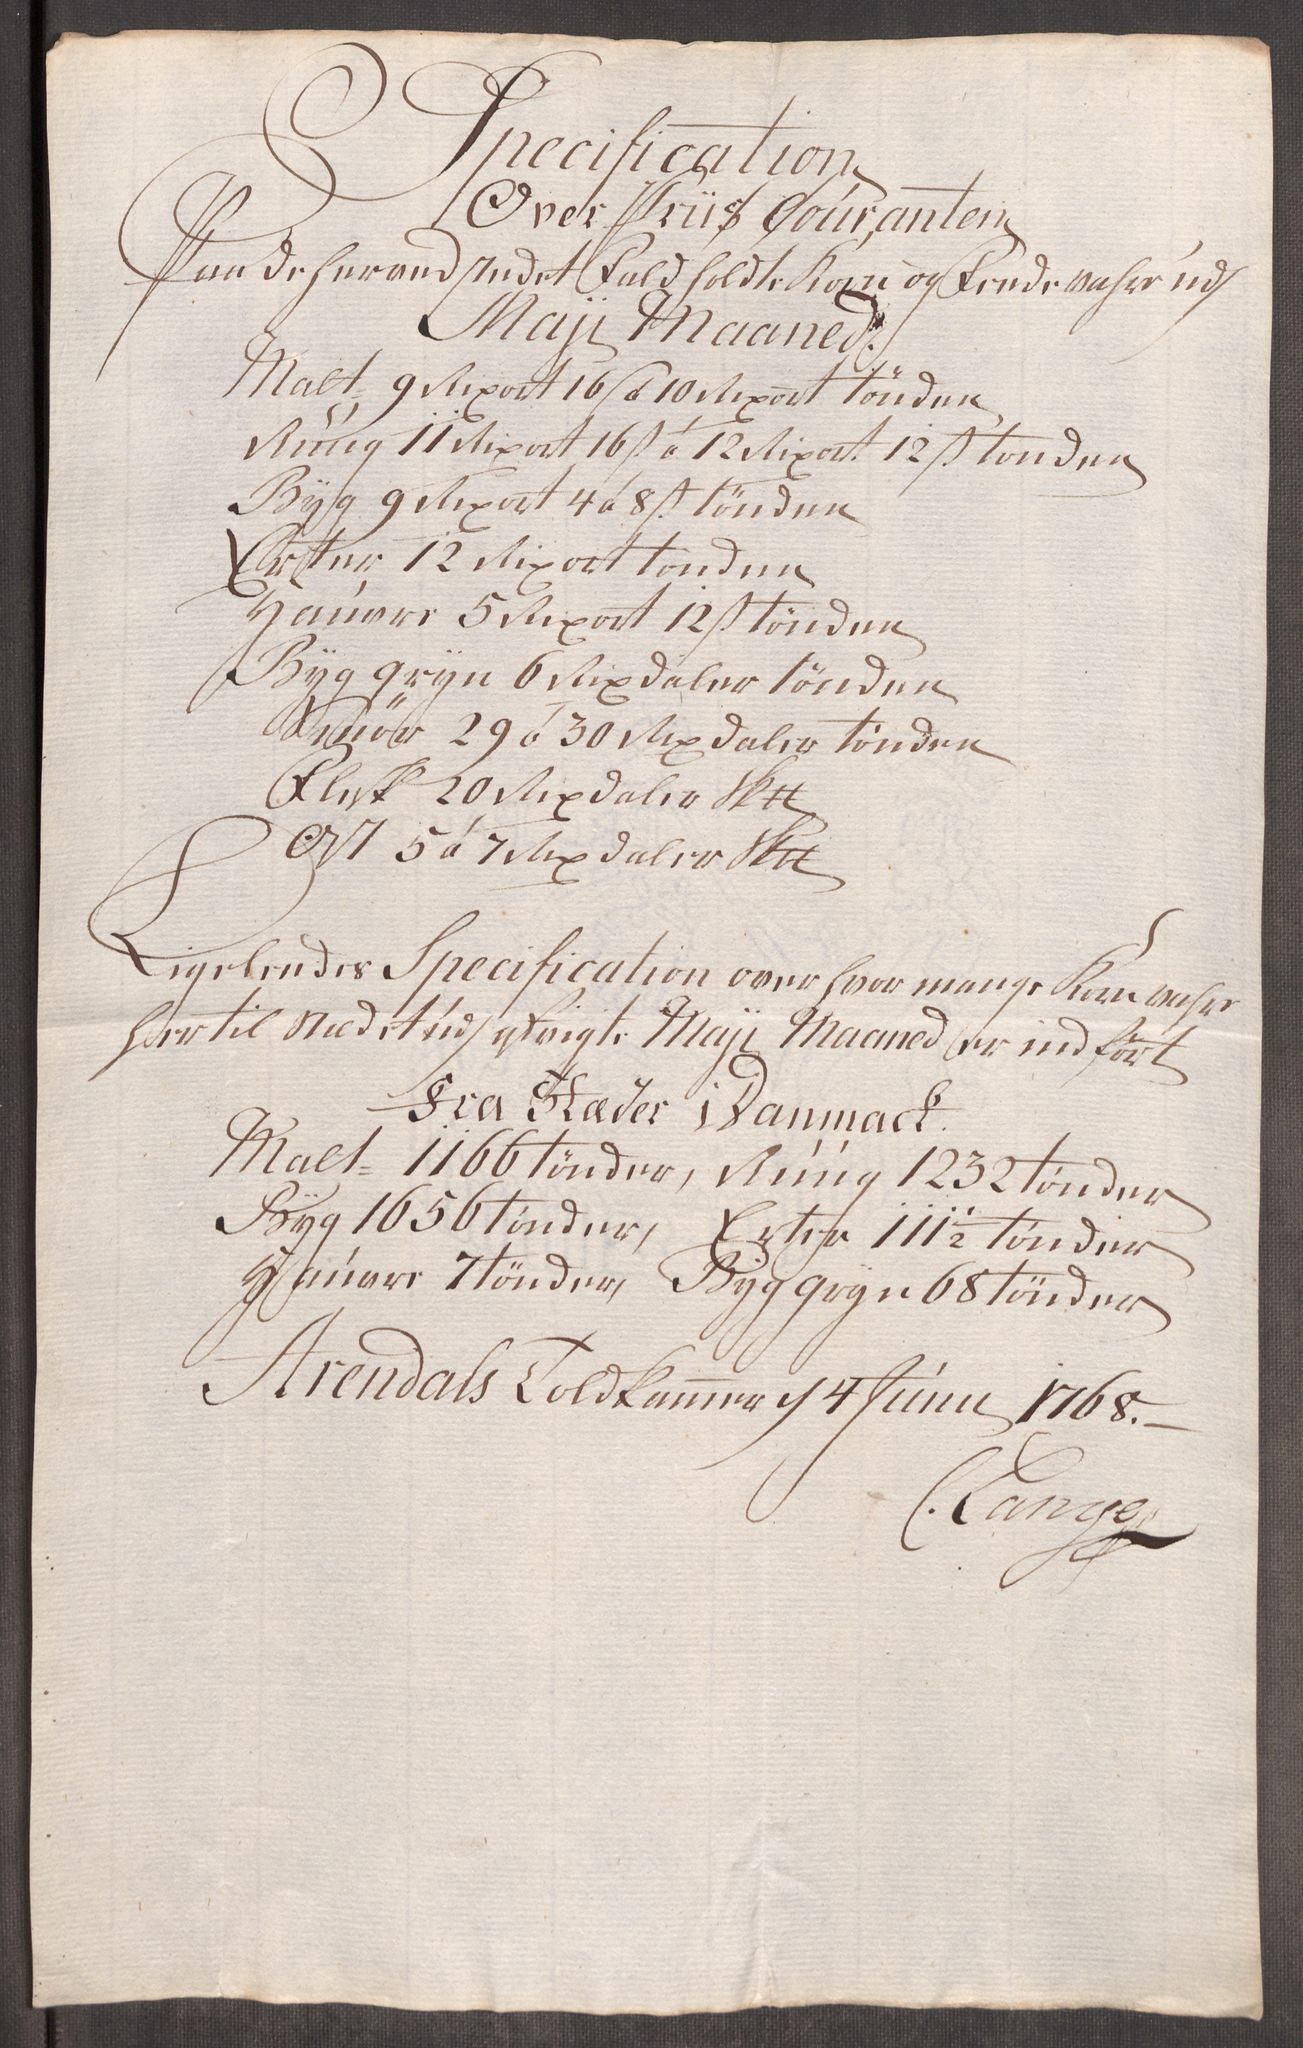 Specification
Over Priis Couranten
Paa de her ved Stedet Fald holdte Korn og Fede vahre udj
Maji Maaned.
Malt 9 Rixort 16 ß á 10 Rixort tönden
Rúúg 11 Rixort 16 ß á 12 Rixort 12 ß tonden
Byg 9 Rixort 4 á 8 ß tönden
Erter 12 Rixort tonden
Haúvre 5 Rixort 12 ß tönden
Byg gryn 6 Rixdaler tönden
Smör 29 á 30 Rixdaler tönden
Flesk 20 Rixdaler Sk℔
Ost 5 á 7 Rixdaler Sk℔
Ligeleedes Specification over hvor mange Korn vahre
her til Stædet údj afvigte Maji Maaned er ind fört
Fra Stæder i Danmack.
Malt 1166 tönder, Rúúg 1232 tönder
Byg 1656 tönder, Erter 111½ tönder
Haúvre 7 tönder, Byg gryn 68 tönder
Arendals Told Kammer d 4 Júnii 1768.
C. Lange